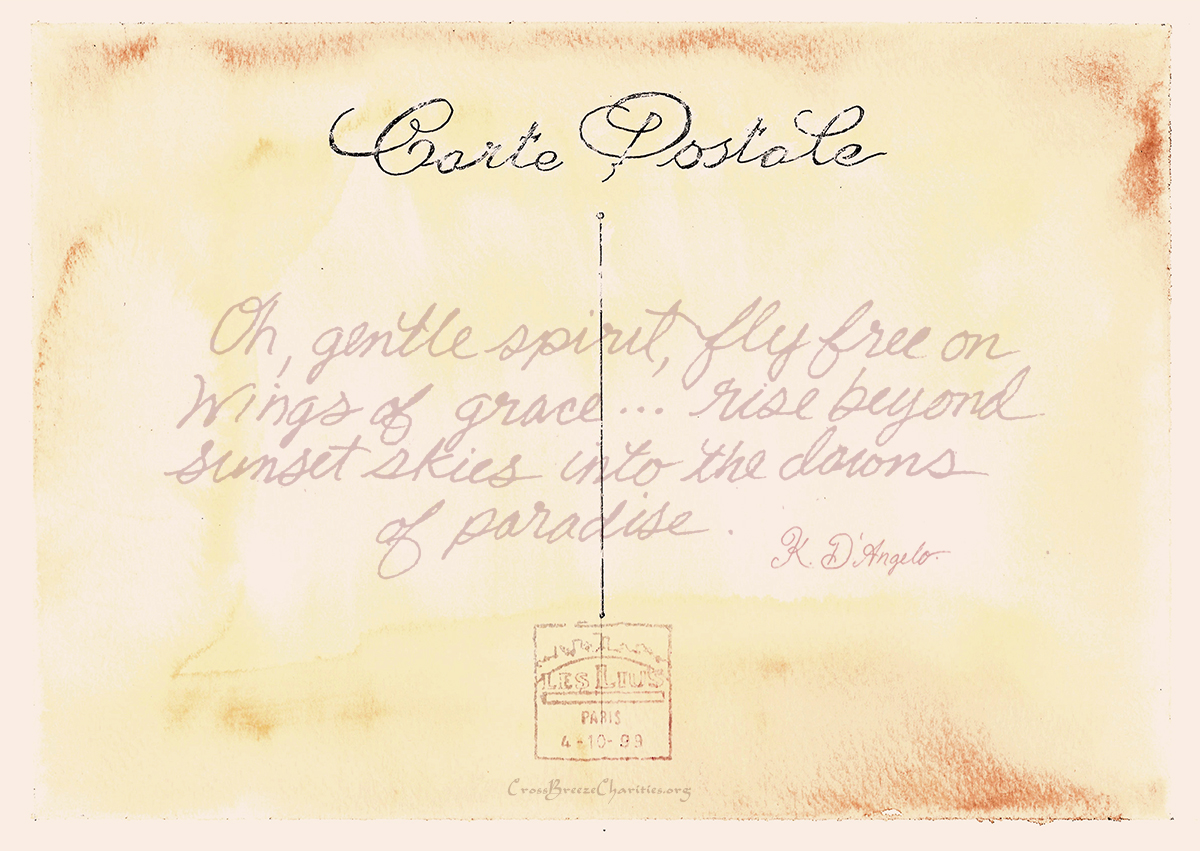 Carte Postale
Oh, gentle spirit, fly free on
Wings of grace... rise beyond
sunset skies into the dawns
of paradise.
K. D'Angelo
LES LILIS
PARIS
4-10-99
CrossBreezeCharities.org